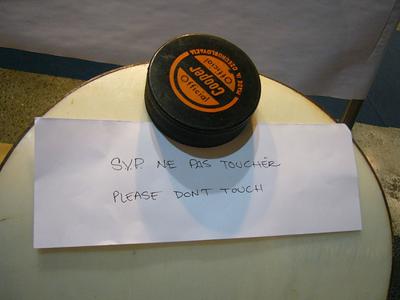 Official
Cooper
Official
MADE IN CZECHOSLOVAKIA
S.V.P. NE PAS TOUCHER
PLEASE DONT TOUCH